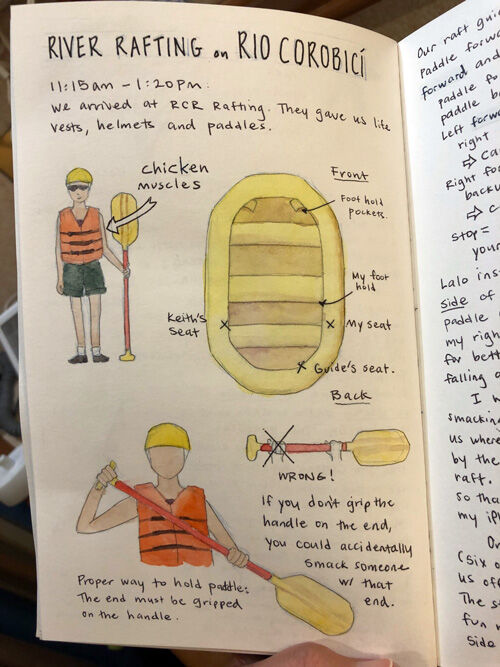 RIVER RAFTING on RIO COROBICÍ
11:15am - 1:20pm.
We arrived at RCR Rafting. They gave us life
vests, helmets and paddles.
chicken
muscles
Front
Foot hold
pockets.
My foot
hold
Keith's
seat
My seat
Guide's seat.
Back
WRONG!
If you don't grip the
handle on the end,
you could accidentally
smack someone
w/ that
end.
Proper way to hold paddle:
The end must be gripped
on the handle.
Our raft
Paddle forw
forward and
paddle
paddle
Left forw
right
Right
back
Stop =
your
Lalo
side of
paddle
my right
for
falling
I
smacking
us where
by the
raft.
so tha
my
(six
us
The
fun
side